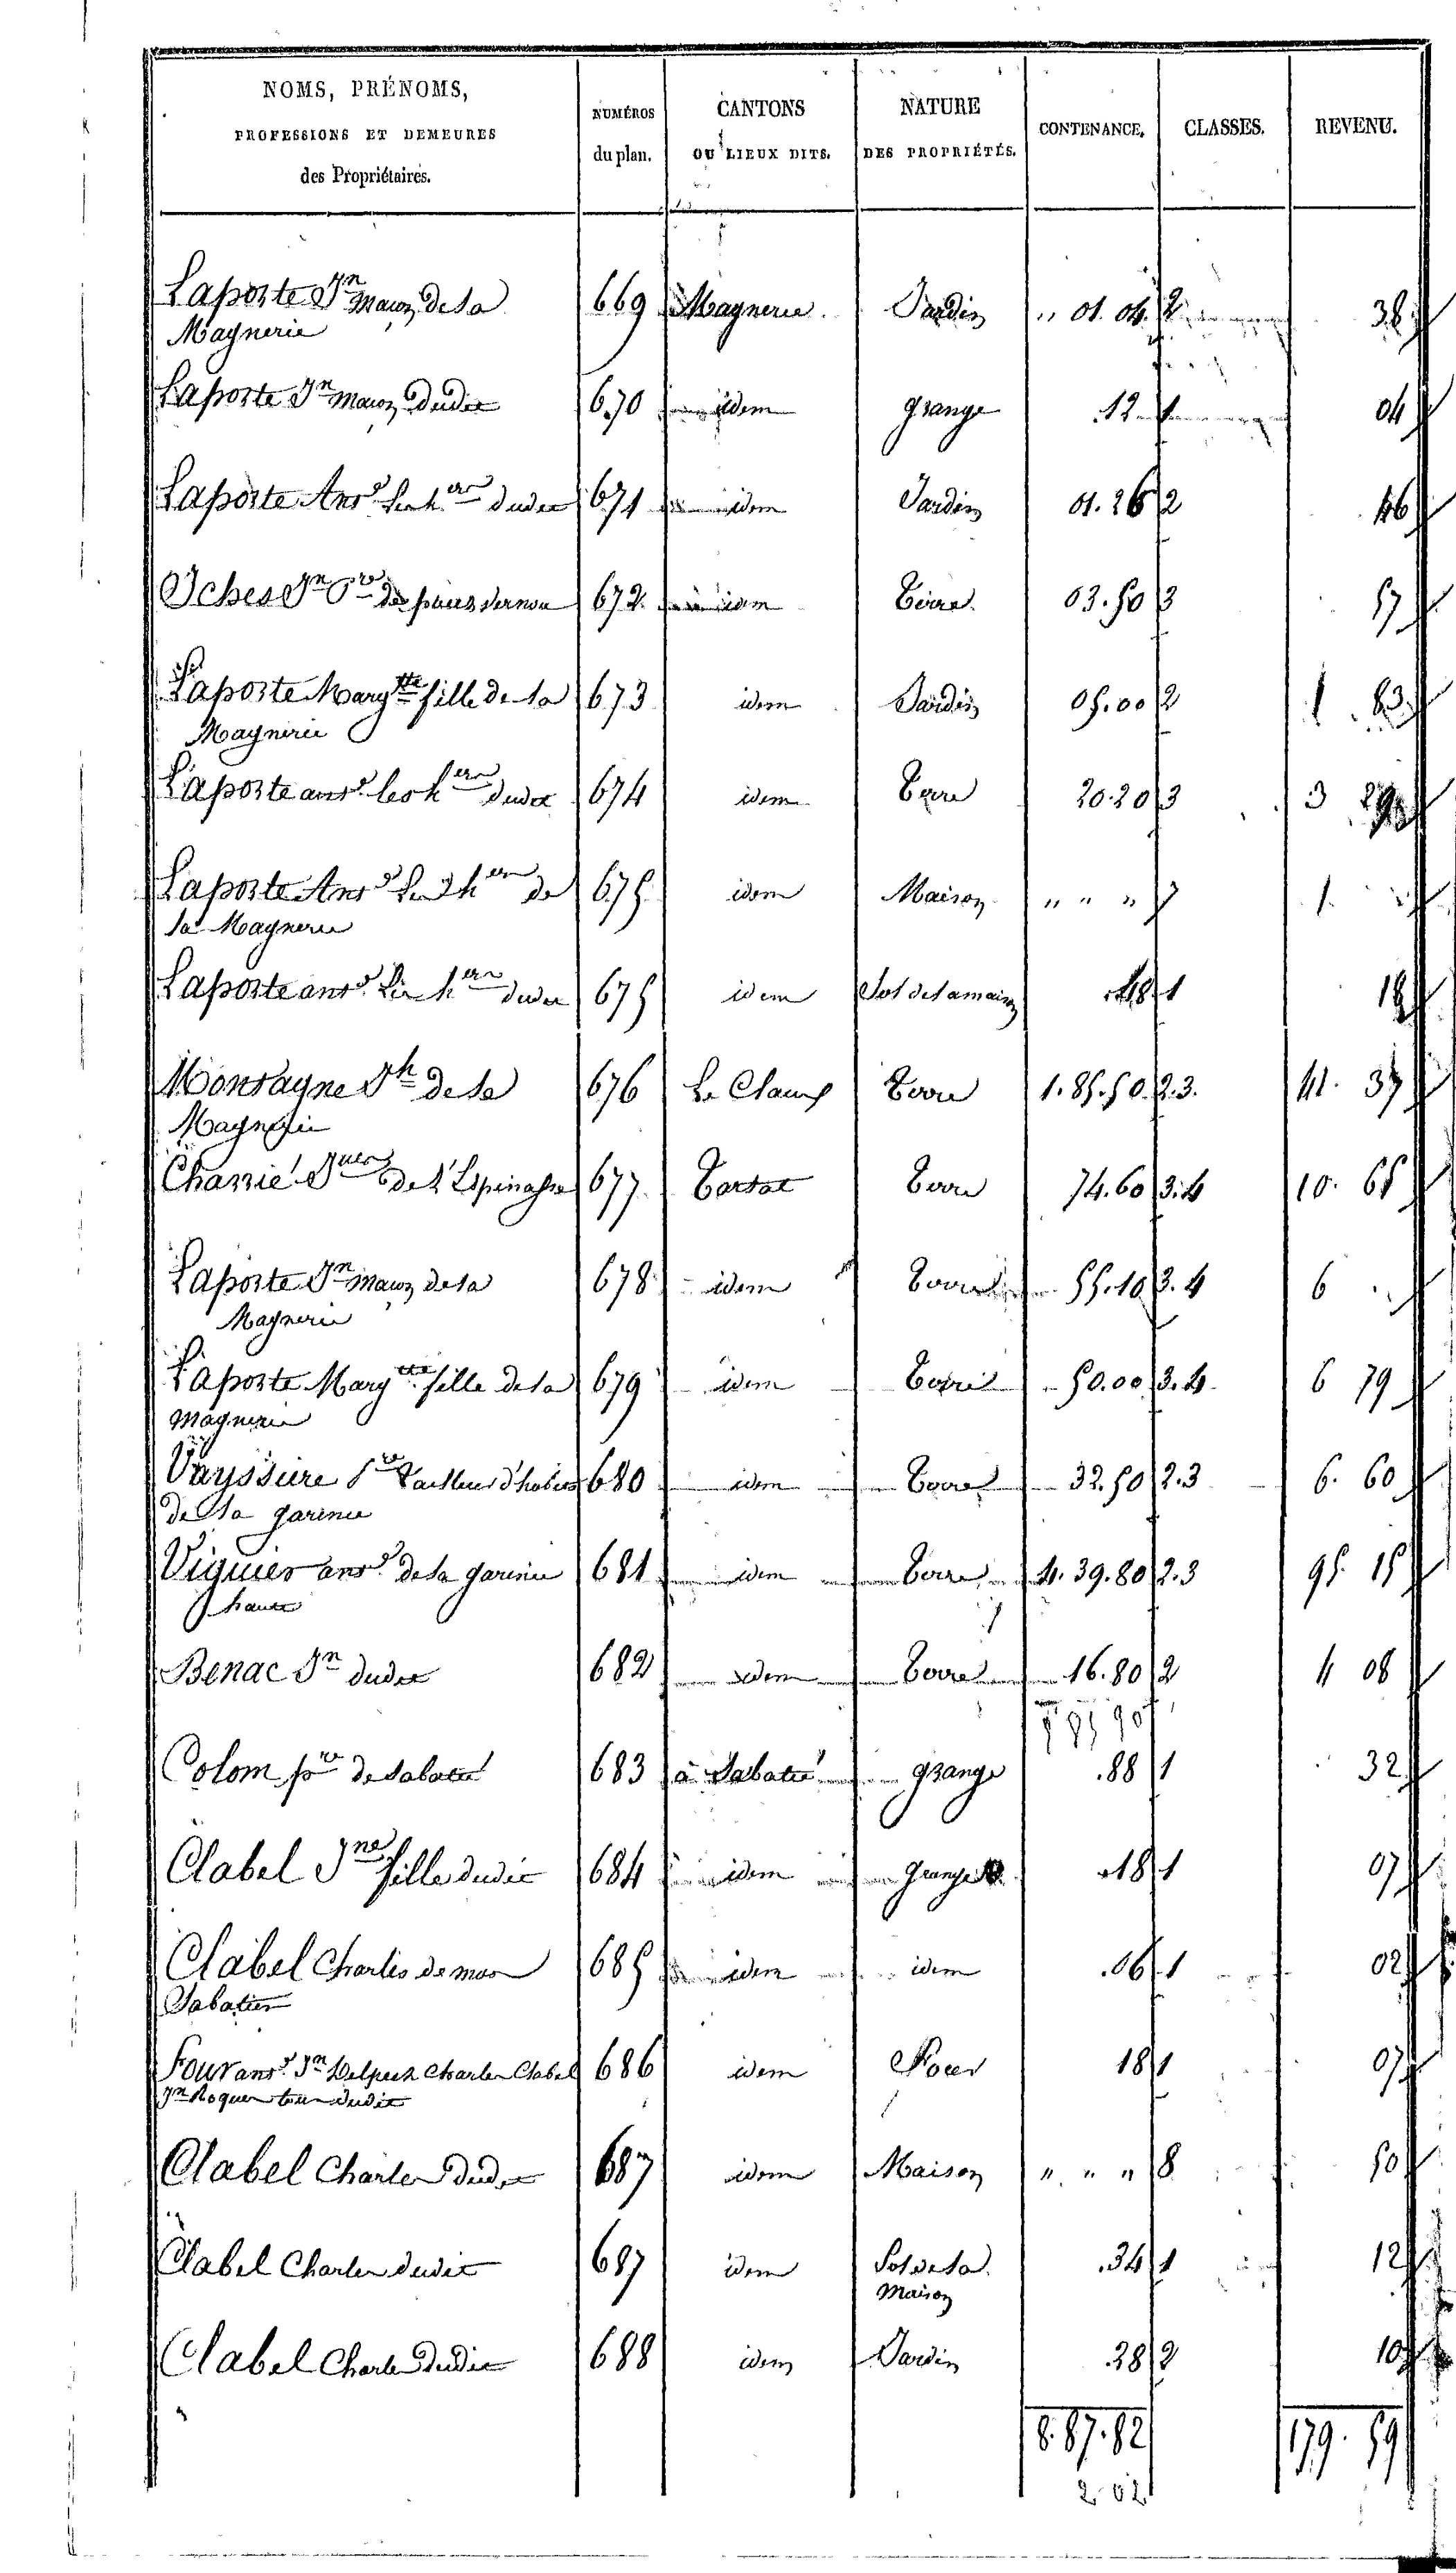 NOMS, PRÉNOMS,
PROFESSIONS ET DEMEURES
des Propriétaires.
NUMÉROS
du plan.
CANTONS
OU LIEUX DITS.
NATURE
DES PROPRIÉTÉS.
CONTENANCE.
CLASSES.
REVENU.
Laporte Jn maçon de la 669 Magnerie Jardin " 01. 04. 2 38
Magnerie
Laporte Jn maçon dudit 670 idem grange .12 1 04
Laporte Ant. les her dudit 671 idem Jardin 01. 26 2 46
Oches Jn 672 idem Terre 03. 50 3 57
Laporte Marg.tte fille de la 673 idem Jardin 05. 00 2 1. 83
Magnerie
Laporte ant. les her dudit 674 idem Terre 20. 20 3 3 29
Laporte Ant. her de 675 idem Maison " " " 7 1.
la Magnerie
Laporte ant. her dudit 675 idem Sol de la maison .48 1 18
Montagne Jh de la 676 Le Champ Terre 1. 85. 50. 2. 3. 41. 37
Magnerie
Charrié de l'Espinasse 677 Tartat Terre 74. 60 3. 4 10. 65
Laporte Jn maçon de la 678 idem Terre 55. 10 3. 4 6 "
Magnerie
Laporte Marg.tte fille de la 679 idem Terre 50. 00 3. 4. 6 79
Magnerie
Vayssiere tailleur d'habits 680 idem Terre 32. 50 2. 3 6. 60
de la garenie
Viguier ant. de la garenie 681 idem Terre 4. 39. 80 2. 3 95. 15
haute
Benac Jn dudit 682 idem Terre 16. 80 2 4 08
Colom pre de Sabatié 683 à Sabatié grange .88 1 32
Clabel Jne fille dudit 684 idem grange .18 1 07
Clabel Charles de mas 685 idem idem .06 1 02
Sabatier
Four ant. Jn Delpech Charles Clabel 686 idem Four 18 1 07
Jn Roques tous dudit
Clabel Charles dudit 687 idem Maison " " " 8 50
Clabel Charles dudit 687 idem Sol de la .34 1 12
Maison
Clabel Charles dudit 688 idem Jardin .28 2 10
8. 87. 82 179. 59
2 02